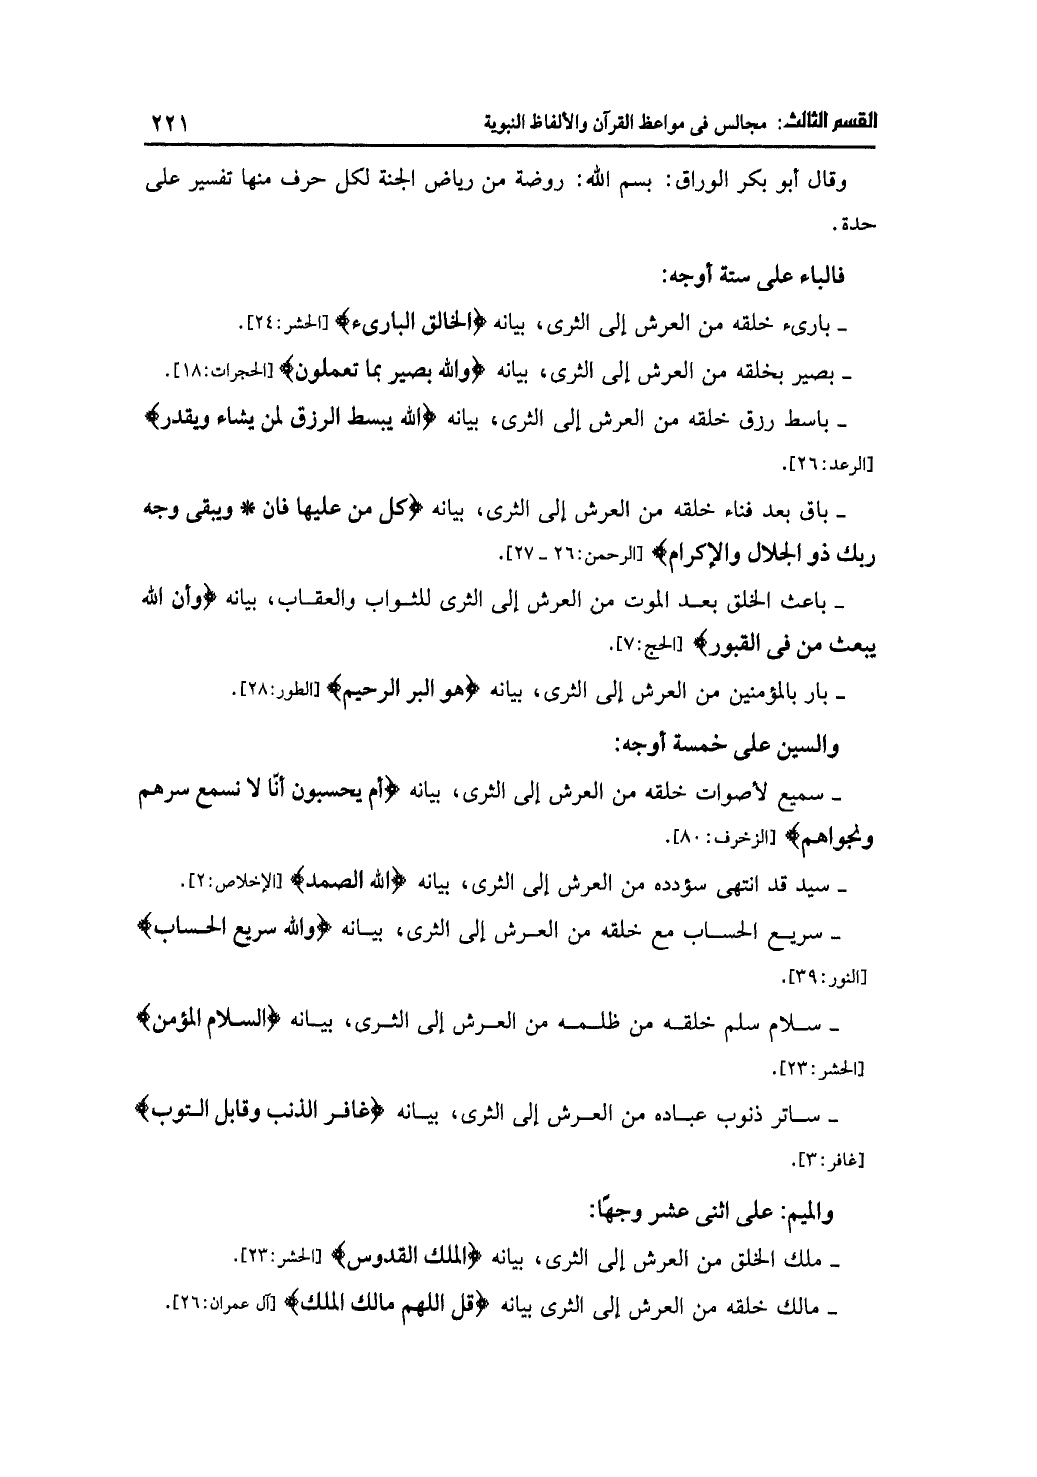 القسم الثالث: مجالس فى مواعظ القرآن والألفاظ النبوية ٢٢١
وقال أبو بكر الوراق: بسم الله: روضة من رياض الجنة لكل حرف منها تفسير على
حدة.
فالباء على ستة أوجه:
ـ بارىء خلقه من العرش إلى الثرى، بيانه ﴿الخالق البارىء﴾ [الحشر:٢٤].
ـ بصير بخلقه من العرش إلى الثرى، بيانه ﴿والله بصير بما تعملون﴾ [الحجرات:١٨].
ـ باسط رزق خلقه من العرش إلى الثرى، بيانه ﴿الله يبسط الرزق لمن يشاء ويقدر﴾
[الرعد:٢٦].
ـ باق بعد فناء خلقه من العرش إلى الثرى، بيانه ﴿كل من عليها فان * ويبقى وجه
ربك ذو الجلال والإكرام﴾ [الرحمن:٢٦ ـ ٢٧].
ـ باعث الخلق بعد الموت من العرش إلى الثرى للثواب والعقاب، بيانه ﴿وأن الله
يبعث من فى القبور﴾ [الحج:٧].
ـ بار بالمؤمنين من العرش إلى الثرى، بيانه ﴿هو البر الرحيم﴾ [الطور:٢٨].
والسين على خمسة أوجه:
ـ سميع لأصوات خلقه من العرش إلى الثرى، بيانه ﴿أم يحسبون أنّا لا نسمع سرهم
ونجواهم﴾ [الزخرف:٨٠].
ـ سيد قد انتهى سؤدده من العرش إلى الثرى، بيانه ﴿الله الصمد﴾ [الإخلاص:٢].
ـ سريع الحساب مع خلقه من العرش إلى الثرى، بيانه ﴿والله سريع الحساب﴾
[النور:٣٩].
ـ سلام سلم خلقه من ظلمه من العرش إلى الثرى، بيانه ﴿السلام المؤمن﴾
[الحشر:٢٣].
ـ ساتر ذنوب عباده من العرش إلى الثرى، بيانه ﴿غافر الذنب وقابل التوب﴾
[غافر:٣].
والميم: على اثنى عشر وجهًا:
ـ ملك الخلق من العرش إلى الثرى، بيانه ﴿الملك القدوس﴾ [الحشر:٢٣].
ـ مالك خلقه من العرش إلى الثرى بيانه ﴿قل اللهم مالك الملك﴾ [آل عمران:٢٦].